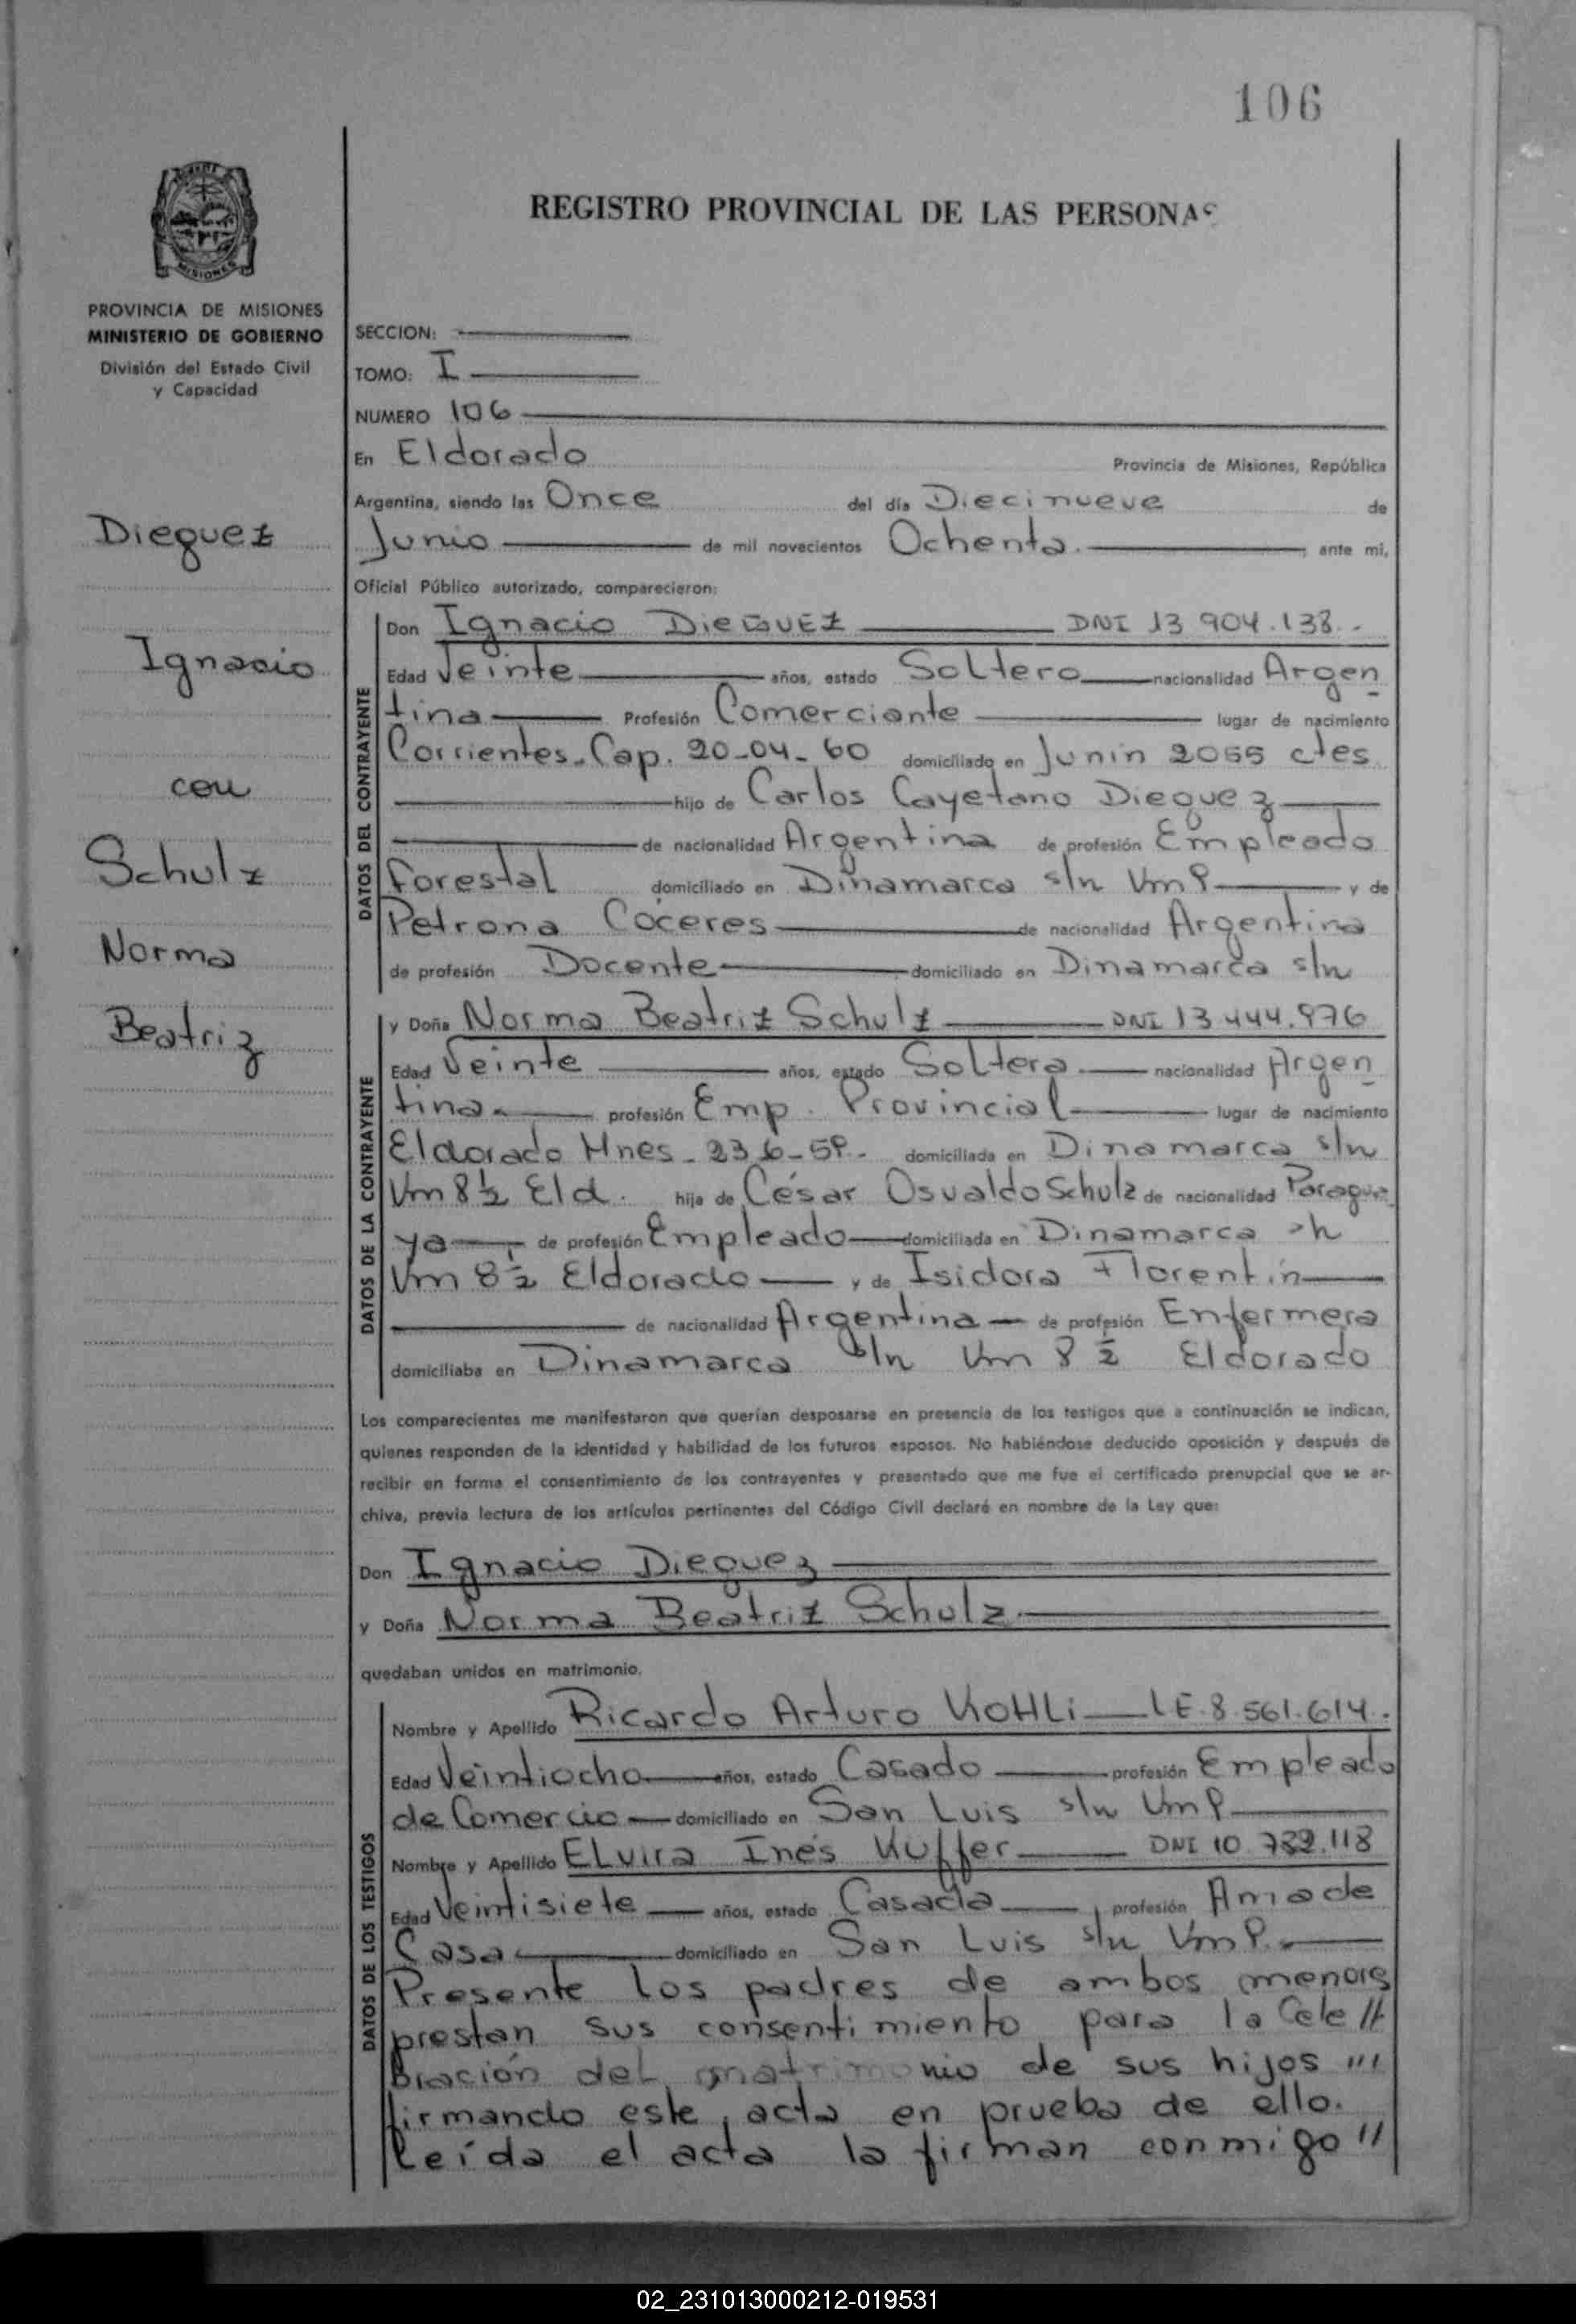 106
REGISTRO PROVINCIAL DE LAS PERSONAS
MISIONES
PROVINCIA DE MISIONES
MINISTERIO DE GOBIERNO
División del Estado Civil
y Capacidad
SECCION:
TOMO: I
NUMERO 106
En Eldorado Provincia de Misiones, República
Argentina, siendo las Once del día Diecinueve de
Junio de mil novecientos Ochenta. ante mi,
Oficial Público autorizado, comparecieron:
Dieguez
Ignacio
con
Schulz
Norma
Beatriz
DATOS DEL CONTRAYENTE
Don Ignacio DieGUEZ DNI 13 904.138.-
Edad Veinte años, estado Soltero nacionalidad Argen
tina Profesión Comerciante lugar de nacimiento
Corrientes-Cap. 20-04-60 domiciliado en Junin 2055 ctes
hijo de Carlos Cayetano Dieguez
de nacionalidad Argentina de profesión Empleado
Forestal domiciliado en Dinamarca s/n y de
Petrona Coceres de nacionalidad Argentina
de profesión Docente domiciliado en Dinamarca s/n
DATOS DE LA CONTRAYENTE
y Doña Norma Beatriz Schulz DNI 13 444.976
Edad Veinte años, estado Soltera nacionalidad Argen
tina. profesión Emp. Provincial lugar de nacimiento
Eldorado Mnes - domiciliada en Dinamarca s/n
Km 8½ Eld. hija de César Osvaldo Schulz de nacionalidad Paragua
ya de profesión Empleado domiciliada en Dinamarca s/n
Km 8½ Eldorado y de Isidora Florentin
de nacionalidad Argentina de profesión Enfermera
domiciliaba en Dinamarca s/n Km 8½ Eldorado
Los comparecientes me manifestaron que querían desposarse en presencia de los testigos que a continuación se indican,
quienes responden de la identidad y habilidad de los futuros esposos. No habiéndose deducido oposición y después de
recibir en forma el consentimiento de los contrayentes y presentado que me fue el certificado prenupcial que se ar-
chiva, previa lectura de los artículos pertinentes del Código Civil declaré en nombre de la Ley que:
Don Ignacio Dieguez
y Doña Norma Beatriz Schulz
quedaban unidos en matrimonio.
DATOS DE LOS TESTIGOS
Nombre y Apellido Ricardo Arturo KOHLi LE.8.561.614.
Edad Veintiocho años, estado Casado profesión Empleado
de Comercio domiciliado en San Luis s/n
Nombre y Apellido ELvira Inés Kuffer DNI 10
Edad Veintisiete años, estado Casada profesión Ama de
Casa domiciliado en San Luis s/n
Presente los padres de ambos menores
prestan sus consentimiento para la Cele//
bración del matrimonio de sus hijos ///
firmando este acta en prueba de ello.
Leída el acta la firman conmigo //
02_231013000212-019531